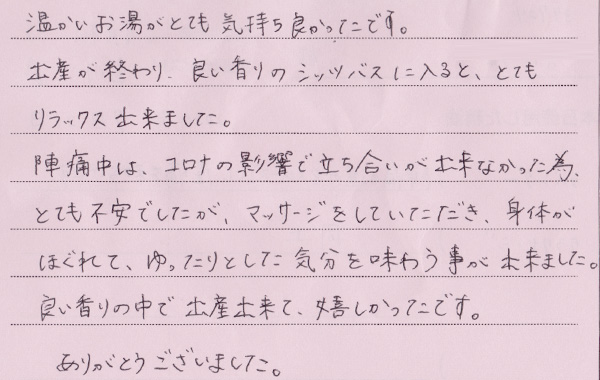 温かいお湯がとても気持ち良かったです。
出産が終わり、良い香りのシッツバスに入ると、とても
リラックス出来ました。
陣痛中は、コロナの影響で立ち合いが出来なかった為、
とても不安でしたが、マッサージをしていただき、身体が
ほぐれて、ゆったりとした気分を味わう事が出来ました。
良い香りの中で出産出来て、嬉しかったです。
ありがとうございました。